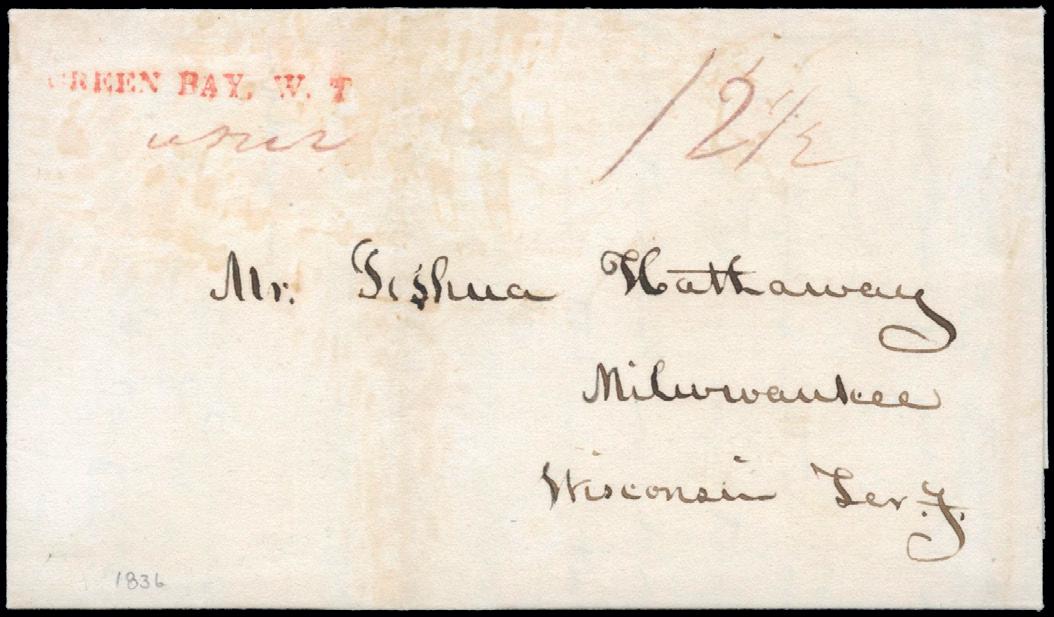 GREEN BAY, W. T
12 1/2
Mr. Joshua Hathaway
Milwwaukee
Wisconsin Ter.y.
1836